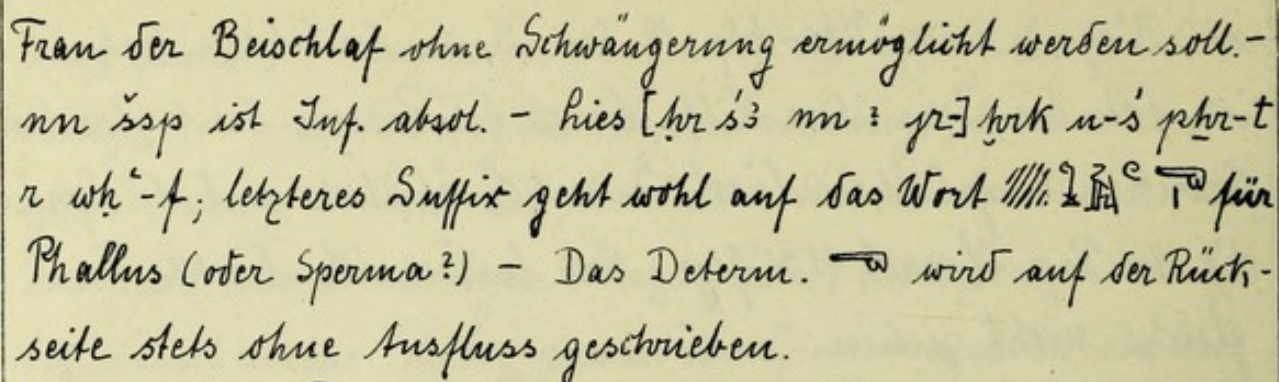 Frau der Beischlaf ohne Schwängerung ermöglicht werden soll. –
nn šsp ist Inf. absol. – Lies [ḥr s'ꜣ nn : jr-] ẖrk n-ś pẖr-t
r wḥꜥ-f; letzteres Suffix geht wohl auf das Wort für
Phallus (oder Sperma?) – Das Determ. 𓂸 wird auf der Rück-
seite stets ohne Ausfluss geschrieben.